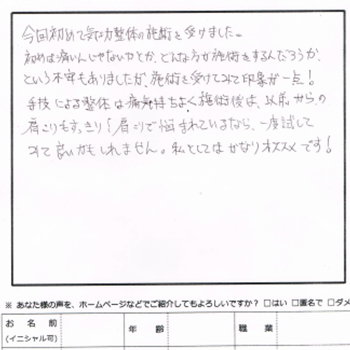 今回初めて気功整体の施術を受けました。
初めは痛いんじゃないかとか、どんな方が施術をするんだろうか、
という不安もありましたが、施術を受けてみて印象が一点!
手技による整体は痛気持ちよく、施術後は、以前からの
肩こりもすっきり!肩こりで悩まれているなら、一度試して
みて良いかもしれません。私としてはかなりオススメです!
※ あなた様の声を、ホームページなどでご紹介してもよろしいですか? □はい □匿名で □ダメ
お 名 前 年 齢 職 業
(イニシャル可)